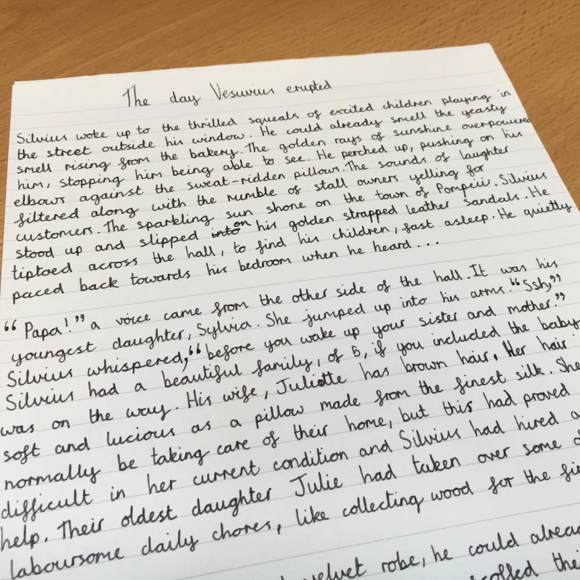 The day Vesuvius erupted
Silvius woke up to the thrilled squeals of excited children playing in
the street outside his window. He could already smell the yeasty
smell rising from the bakery. The golden rays of sunshine overpowered
him, stopping him being able to see. He perched up, pushing on his
elbows against the sweat-ridden pillows. The sounds of laughter
filtered along with the rumble of stall owners yelling for
customers. The sparkling sun shone on the town of Pompeii. Silvius
stood up and slipped into on his golden strapped leather sandals. He
tiptoed across the hall, to find his children, fast asleep. He quietly
paced back towards his bedroom when he heard...
"Papa!" a voice came from the other side of the hall. It was his
youngest daughter, Sylvia. She jumped up into his arms. "Ssh,"
Silvius whispered, "before you wake up your sister and mother."
Silvius had a beautiful family, of 5, if you included the baby
was on the way. His wife, Juliette has brown hair. Her hair
soft and lucious as a pillow made from the finest silk. She
normally be taking care of their home, but this had proved
difficult in her current condition and Silvius had hired a
help. Their oldest daughter Julie had taken over some of
laboursome daily chores, like collecting wood for the fir
velvet robe, he could alrea